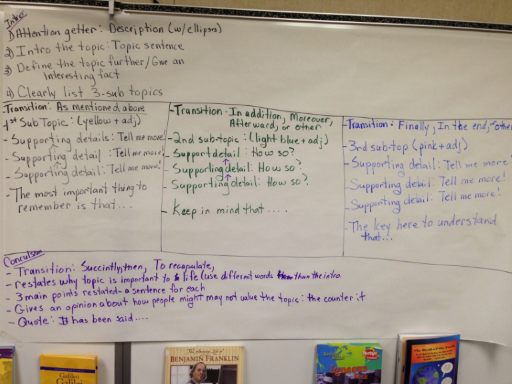 Intro
1) Attention getter: Description (w/ellipses)
2) Intro the topic: Topic sentence
3) Define the topic further/Give an
Interesting fact
4) Clearly list 3-sub topics
Transition: As mentioned above
1st Sub Topic: (yellow + adj)
- Supporting details: Tell me more!
- Supporting detail: Tell me more!
- Supporting details: Tell me more!
- The most important thing to
remember is that....
Transition- In addition, Moreover,
Afterward, or other
- 2nd sub-topic: (light blue + adj)
- Support detail: How so?
- Supporting detail: How so?
- Supporting detail: How so?
- Keep in mind that.....
Transition: Finally, In the end, other
- 3rd subtop (pink + adj)
- Supporting detail: Tell me more!
Supporting detail: Tell me more!
- Supporting detail: Tell me more!
- The key here to understand
that...
Conclusion
- Transition: Succintly, then, To recapulate,
- restates why topic is important to life (use different words than the intro
- 3 main points restated- a sentence for each
- Gives an opinion about how people might may not value the topic: the counter it
- Quote: It has been said....
Galileo
Galileo
BENJAMIN FRANKLIN